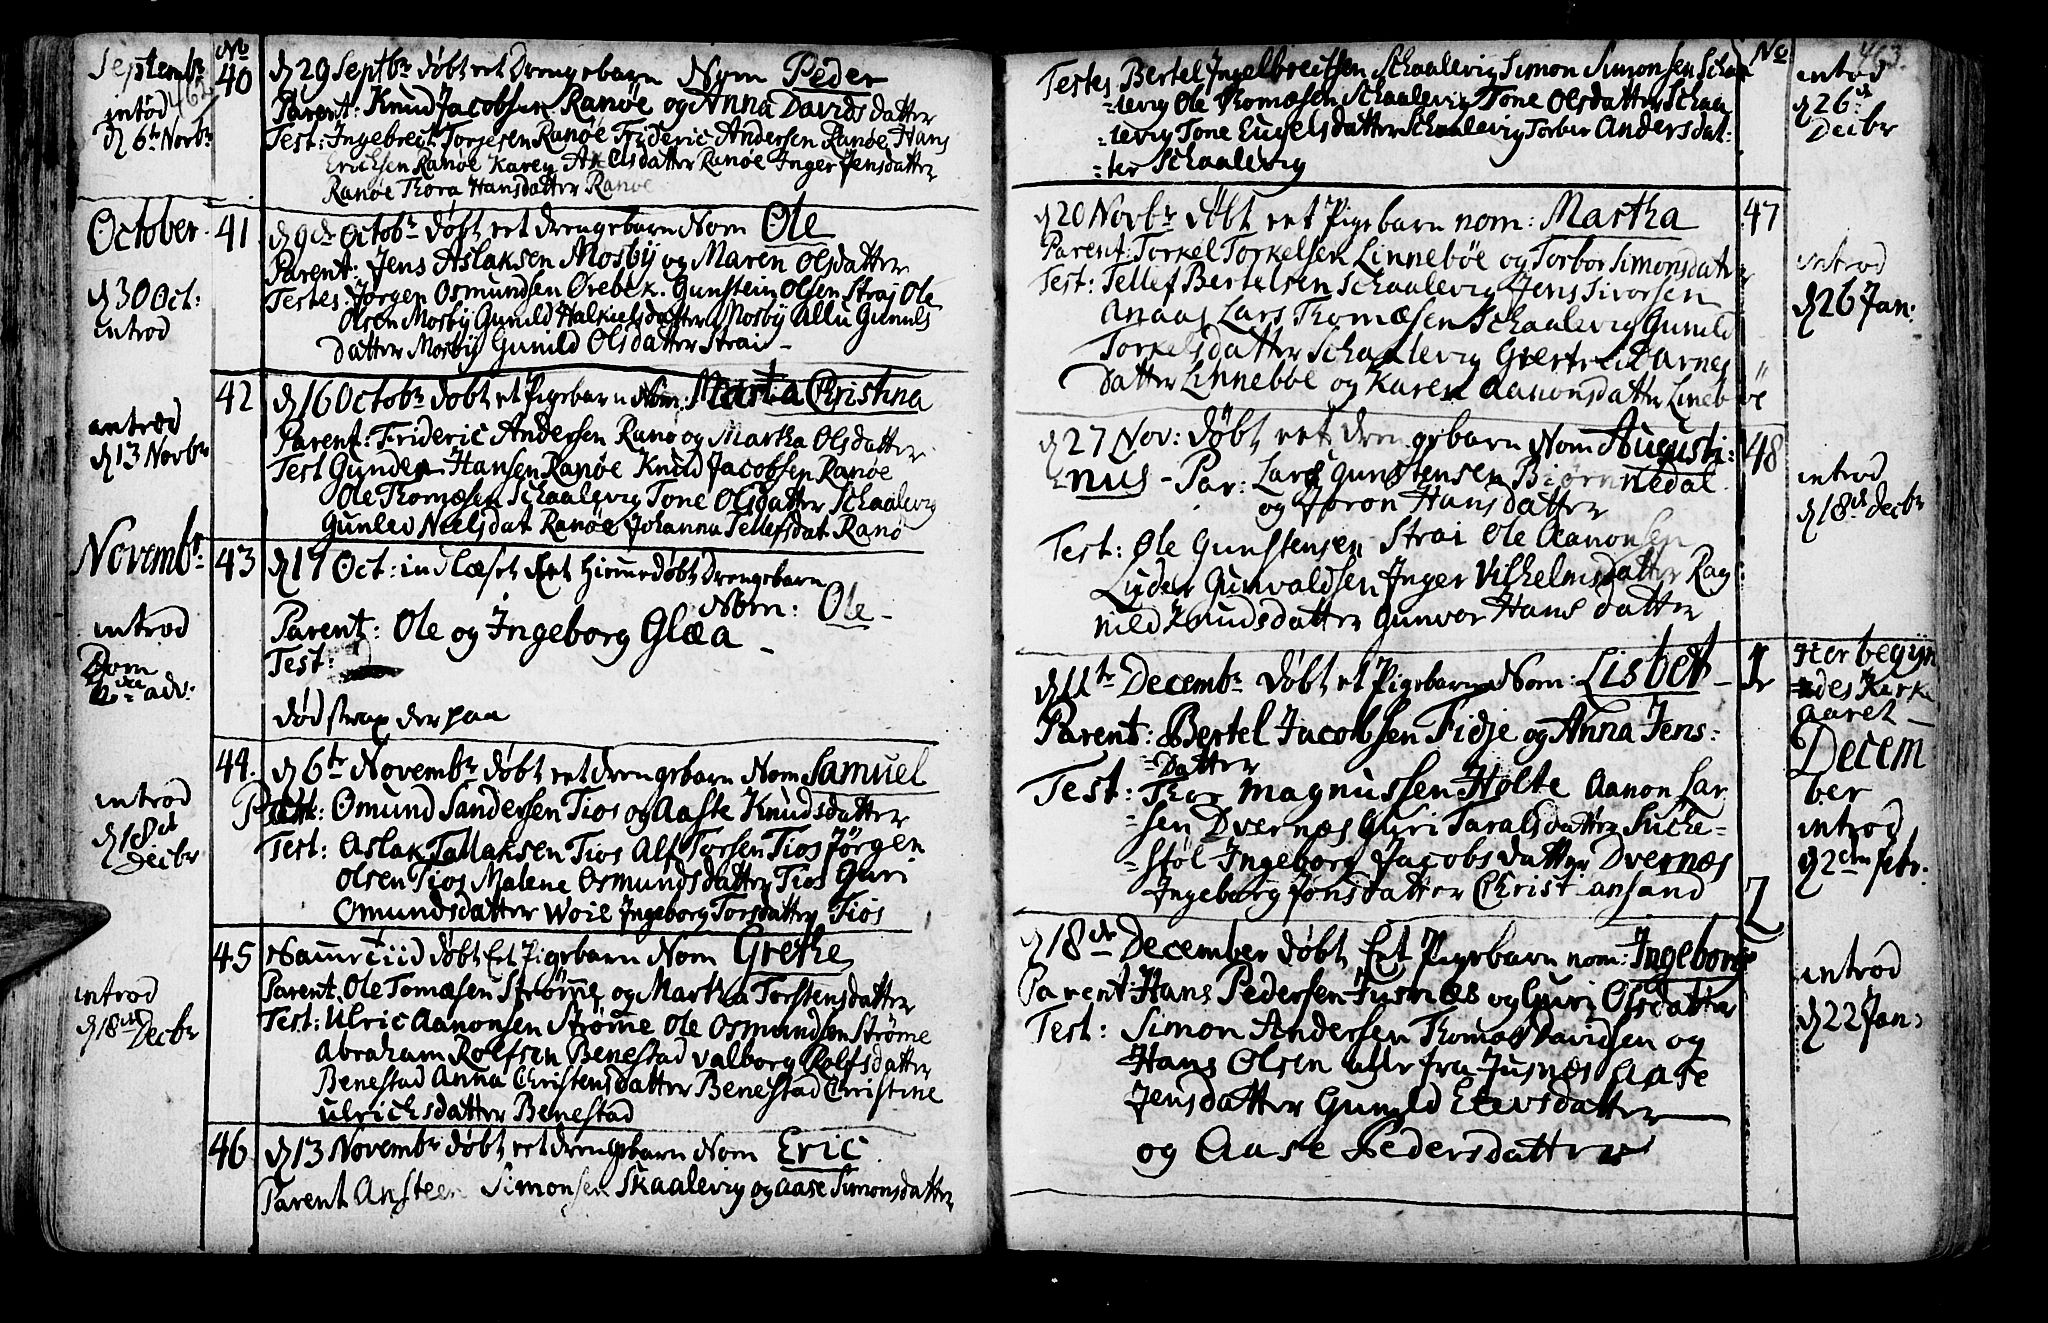 Septembr No
462
40 d 29 Septbr døbt eet Drengebarn Nom Peder
introd d 6te Novbr
Parent: Knud Jacobsen Ranøe og Anna Davids datter
Test: Ingebregt Torjesen Ranøe Frideric Andersen Ranøe Hans
Erichsen Ranøe Karen Axelsdatter Ranøe Inger Jensdatter
Ranøe Thora Hansdatter Ranøe
October 41 d 9de Octobr døbt eet drengebarn Nom Ole
Parent: Jens Aslaksen Mosby og Maren Olsdatter
d 30 Oct: introd
Testes: Jørgen Osmundsen Ørebek. Gunstein Olsen Strai Ole
Olsen Mosby Gunild Halkielsdatter Mosby Gunuls
datter Mosby Gunild Olsdatter Strai
42 d 16 Octobr døbt et Pigebarn Nom: Marta Christina
introd d 13 Novbr
Parent: Frideric Andersen Ranø og Martha Olsdatter
Test Gunder Hansen Ranøe Knud Jacobsen Ranøe
Ole Thomæsen Schaalevig Tone Olsdatter Schaalevig
Gunlev Neelsdat Ranøe Johanna Tellefsdat Ranø
Novembr: 43 d 17 Oct: in Flæset Eet Hiemmedøbt Drengebarn
Nom: Ole
introd Dom 2den adv:
Parent: Ole og Ingeborg Glæa
Test:
død strax der paa
44. d 6te Novembr døbt eet drengebarn Nom Samuel
introd d 18de Decbr
Par: Omund Sandersen Tios og Aaste Knudsdatter
Test: Aslak Tallaksen Tios Alf Torsen Tios Jørgen
Olsen Tios Malene Osmundsdatter Tios Guri
Omundsdatter Woie Ingeborg Torsdatter Tios
45 Samme tiid døbt Eet Pigebarn Nom Grethe
introd d 18de Decbr
Parent. Ole Tomæsen Strømme og Martha Torstensdatter
Test: Ulric Aanonsen Strømme Ole Osmundsen Strømme
Abraham Rolfsen Benestad Valborg Rolfsdatter
Benestad Anna Christensdatter Benestad Christine
Ulrichsdatter Benestad
46 d 13 Novembr døbt eet drengebarn Nom Eric
Parent Ansteen Simonsen Skaalevig og Aase Simonsdatter
No 463.
Testes Bertel Ingelbreitsen Schaalevig Simon Simonsen Schaa
=levig Ole Thomæsen Schaalevig Tone Olsdatter Schaa
=levig Tone Eugelsdatter Schaalevig Torber Andersdat:
=ter Schaalevig
introd d 26de Decbr
d 20 Novbr døbt eet Pigebarn nom: Martha 47
Parent: Torkel Torkelsen Linnebøe og Torbor Simonsdatter
introd d 26 Jan:
Test: Tellef Bertelsen Schaalevig Jens Sivorsen
Anaas Lars Thomæsen Schaalevig Gunild
Torkelsdatter Schaalevig Giertrud Arnes
datter Linnebøe og Karen Aanonsdatter Linebøe
d 27 Nov: døbt eet drengebarn Nom Augusti: 48
nus - Par: Lars Gunstensen Biørnnedal
og Joron Hansdatter
introd d 18de Decbr
Test: Ole Gunstensen Strai Ole Aanonsen
Lyder Gunvaldsen Inger Vilhelmsdatter Rag
nild Knudsdatter Gunvor Hans datter
d 11te Decembr døbt et Pigebarn Nom: Lisbet 1
Her begyn
=des Kirke
aaret
Decem
ber
Parent: Bertel Jacobsen Fidje og Anna Jens:
=Datter
Test: Thor Magnussen Holte Aanon Lar
=sen Dvernæs Guri Taralsdatter Suche=
=støl Ingeborg Jacobsdatter Dvernæs
Ingeborg Jonsdatter Christiansand
introd d 2den febr.
d 18de December døbt Eet Pigebarn nom: Ingeborg 2
Parent: Hans Pedersen Jusnæs og Guri Olsdatter
introd d 22 Jan:
Test: Simon Andersen Thomas Davidsen og
Hans Olsen alle fra Jusnæs Aase
Jensdatter Gunild Elevsdatter
og Aase Pedersdatter